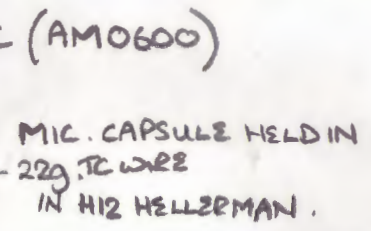 - (AM0600)
MIC. CAPSULE HELD IN
- 22g .TC WIRE
IN H12 HELLERMAN.